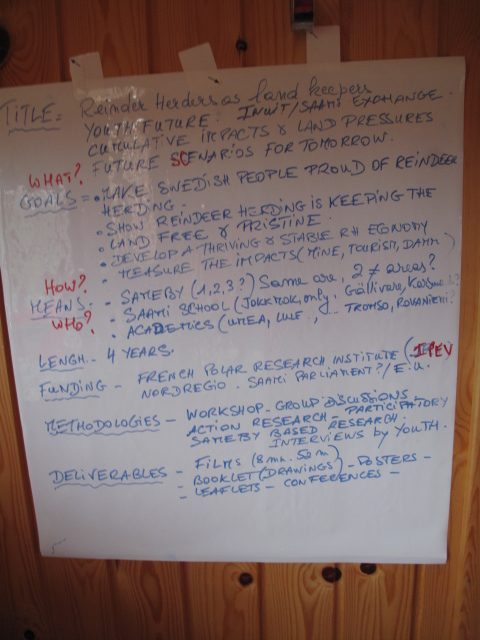 TITLE = Reinder Herders as land keepers
YOUTH FUTURE: INUIT/SAAMI EXCHANGE.
CUMULATIVE IMPACTS & LAND PRESSURES
FUTURE SCENARIOS FOR TOMORROW.
WHAT?
GOALS = • MAKE SWEDISH PEOPLE PROUD OF REINDEER
HERDING.
• SHOW REINDEER HERDING IS KEEPING THE
LAND FREE & PRISTINE.
• DEVELOP A THRIVING & STABLE RH ECONOMY
• MEASURE THE IMPACTS (MINE, TOURISM, DAMM)
HOW?
MEANS: - SAMEBY (1,2,3?) Same are, 2 ≠ areas?
WHO? - SAAMI SCHOOL (JOKKMOK, only, Gällivare,
- ACADEMICS (UMEA, TROMSO, ROVANIEMI?
LENGH - 4 YEARS.
FUNDING - FRENCH POLAR RESEARCH INSTITUTE ( IPEV
NORDREGIO - SAMI PARLIAMENT?/E.U.
METHODOLOGIES - WORKSHOP - GROUP DISCUSSIONS -
ACTION RESEARCH - PARTICIPATORY
SAMEBY BASED RESEARCH.
INTERVIEWS by YOUTH.
DELIVERABLES - FILMS (8 mn. 52 m)
- BOOKLET (DRAWINGS) - POSTERS -
- LEAFLETS - CONFERENCES -